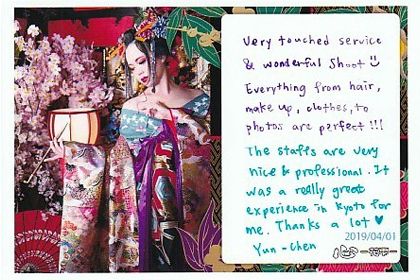 Very touched service
& wonderful shoot
Everything from hair,
make up, clothes, to
photos are perfect !!!
The staffs are very
nice & professional. It
was a really great
experience in Kyoto for
me. Thanks a lot ♥
2019/04/01
Yun-Chen